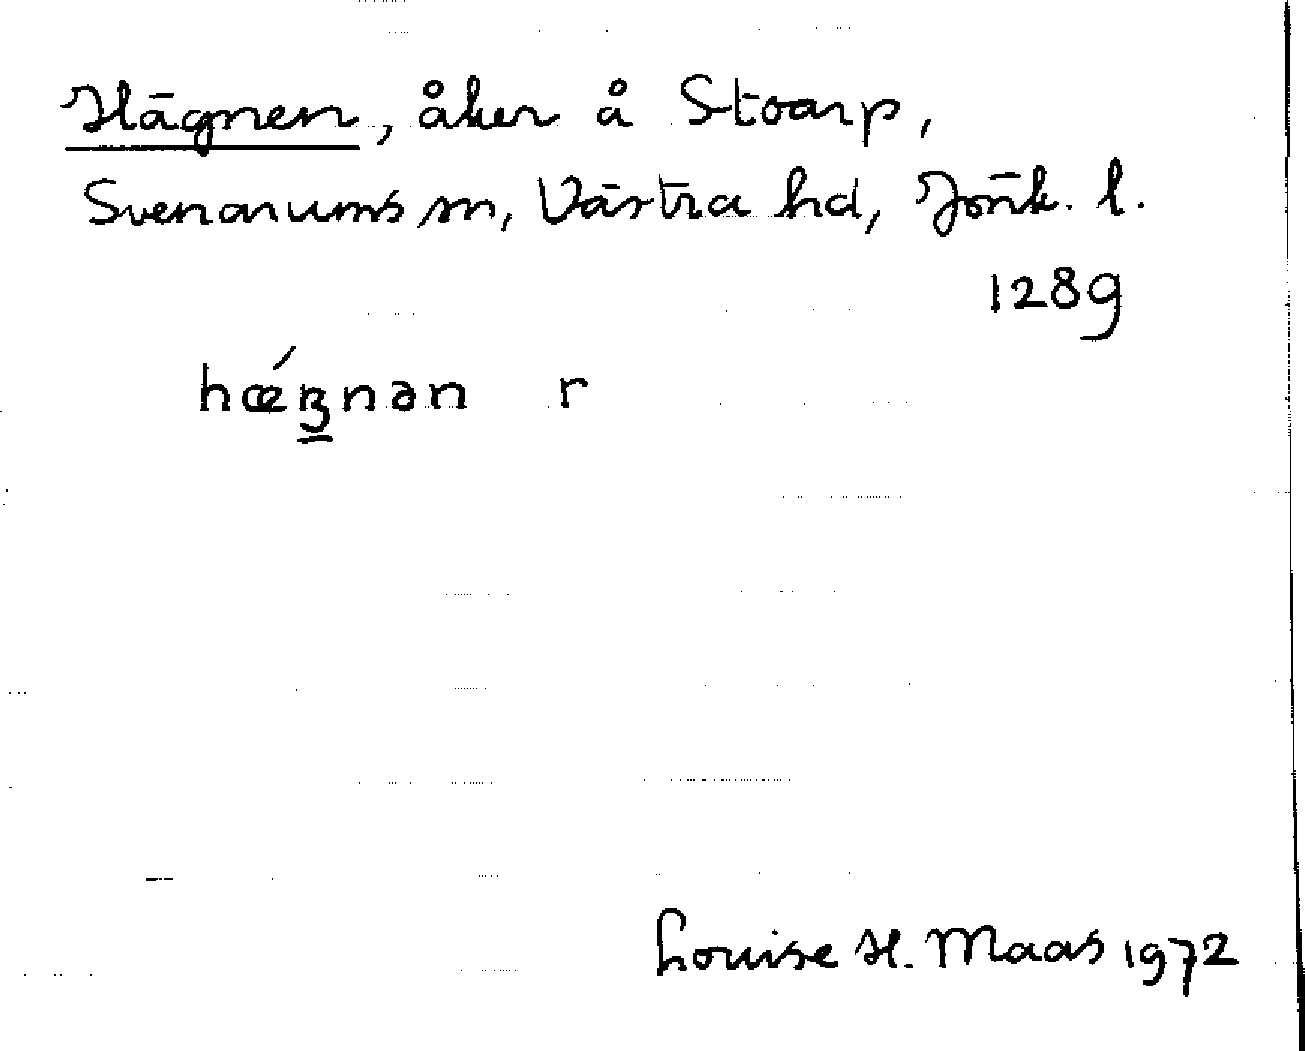 Hägnen, åker å Stoarp,
Svenarums sn, Västra hd, Jönk. l.
1289
hǿꞬnən r
Louise H. Maas 1972